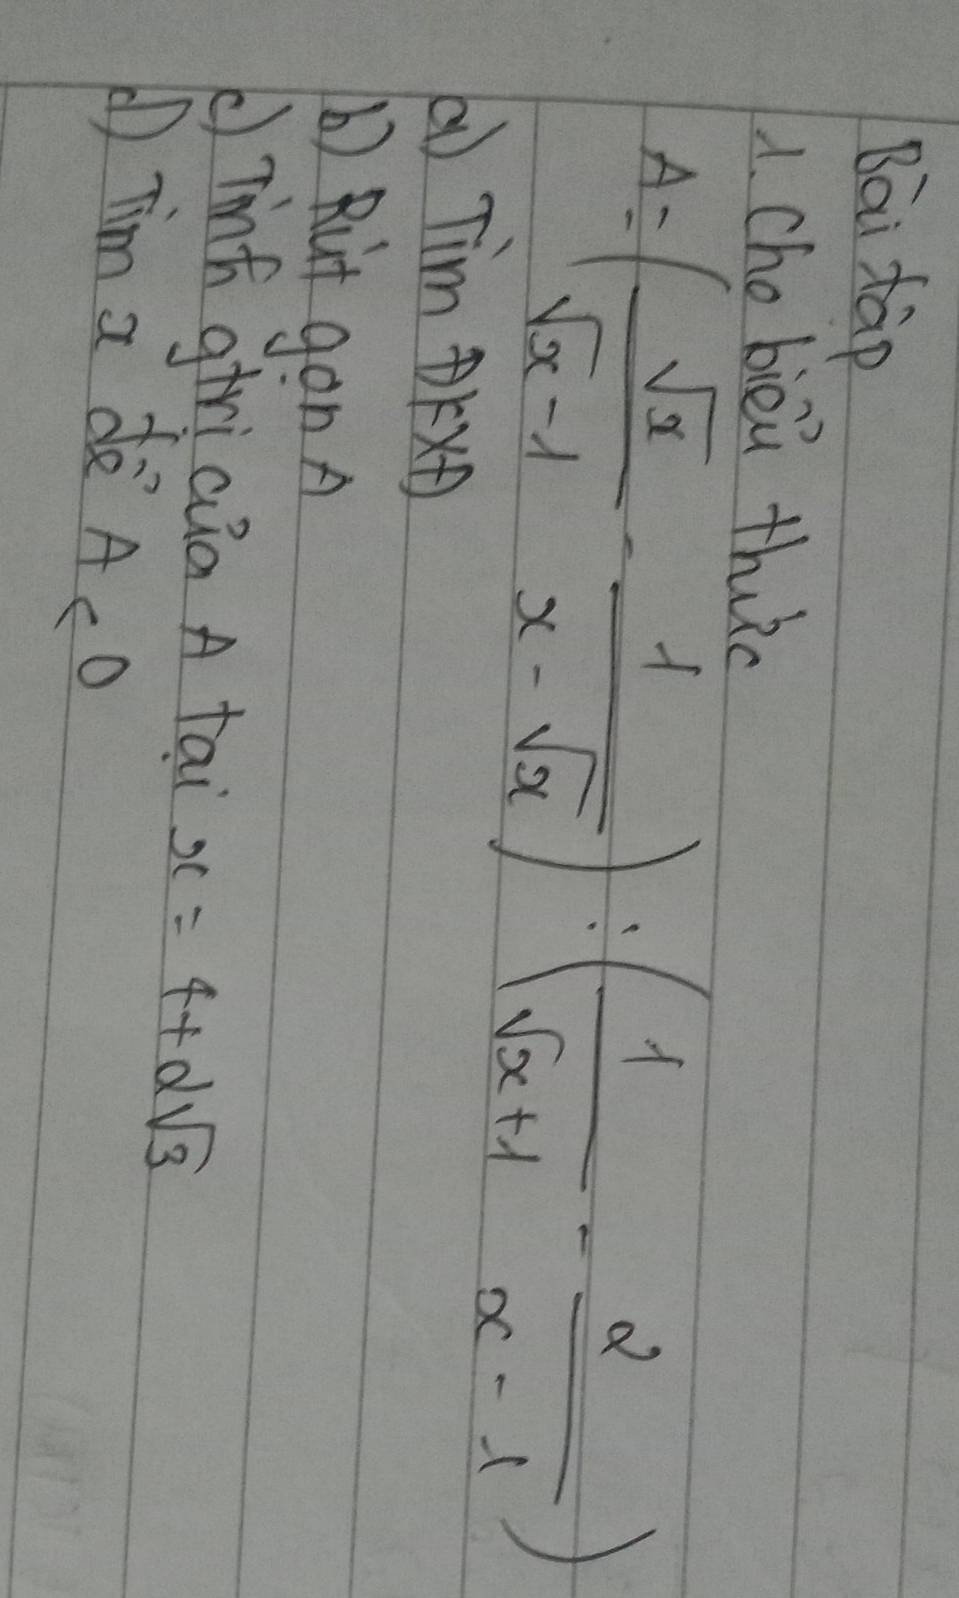 Bài tập
1. Cho biểu thức
A = ( √x / (√x - 1) - 1 / (x - √x) ) : ( 1 / (√x + 1) - 2 / (x - 1) )
a) Tìm ĐKXĐ
b) Rút gọn A
c) Tính gtri của A tại x = 4 + 2√3
d) Tìm x để A < 0